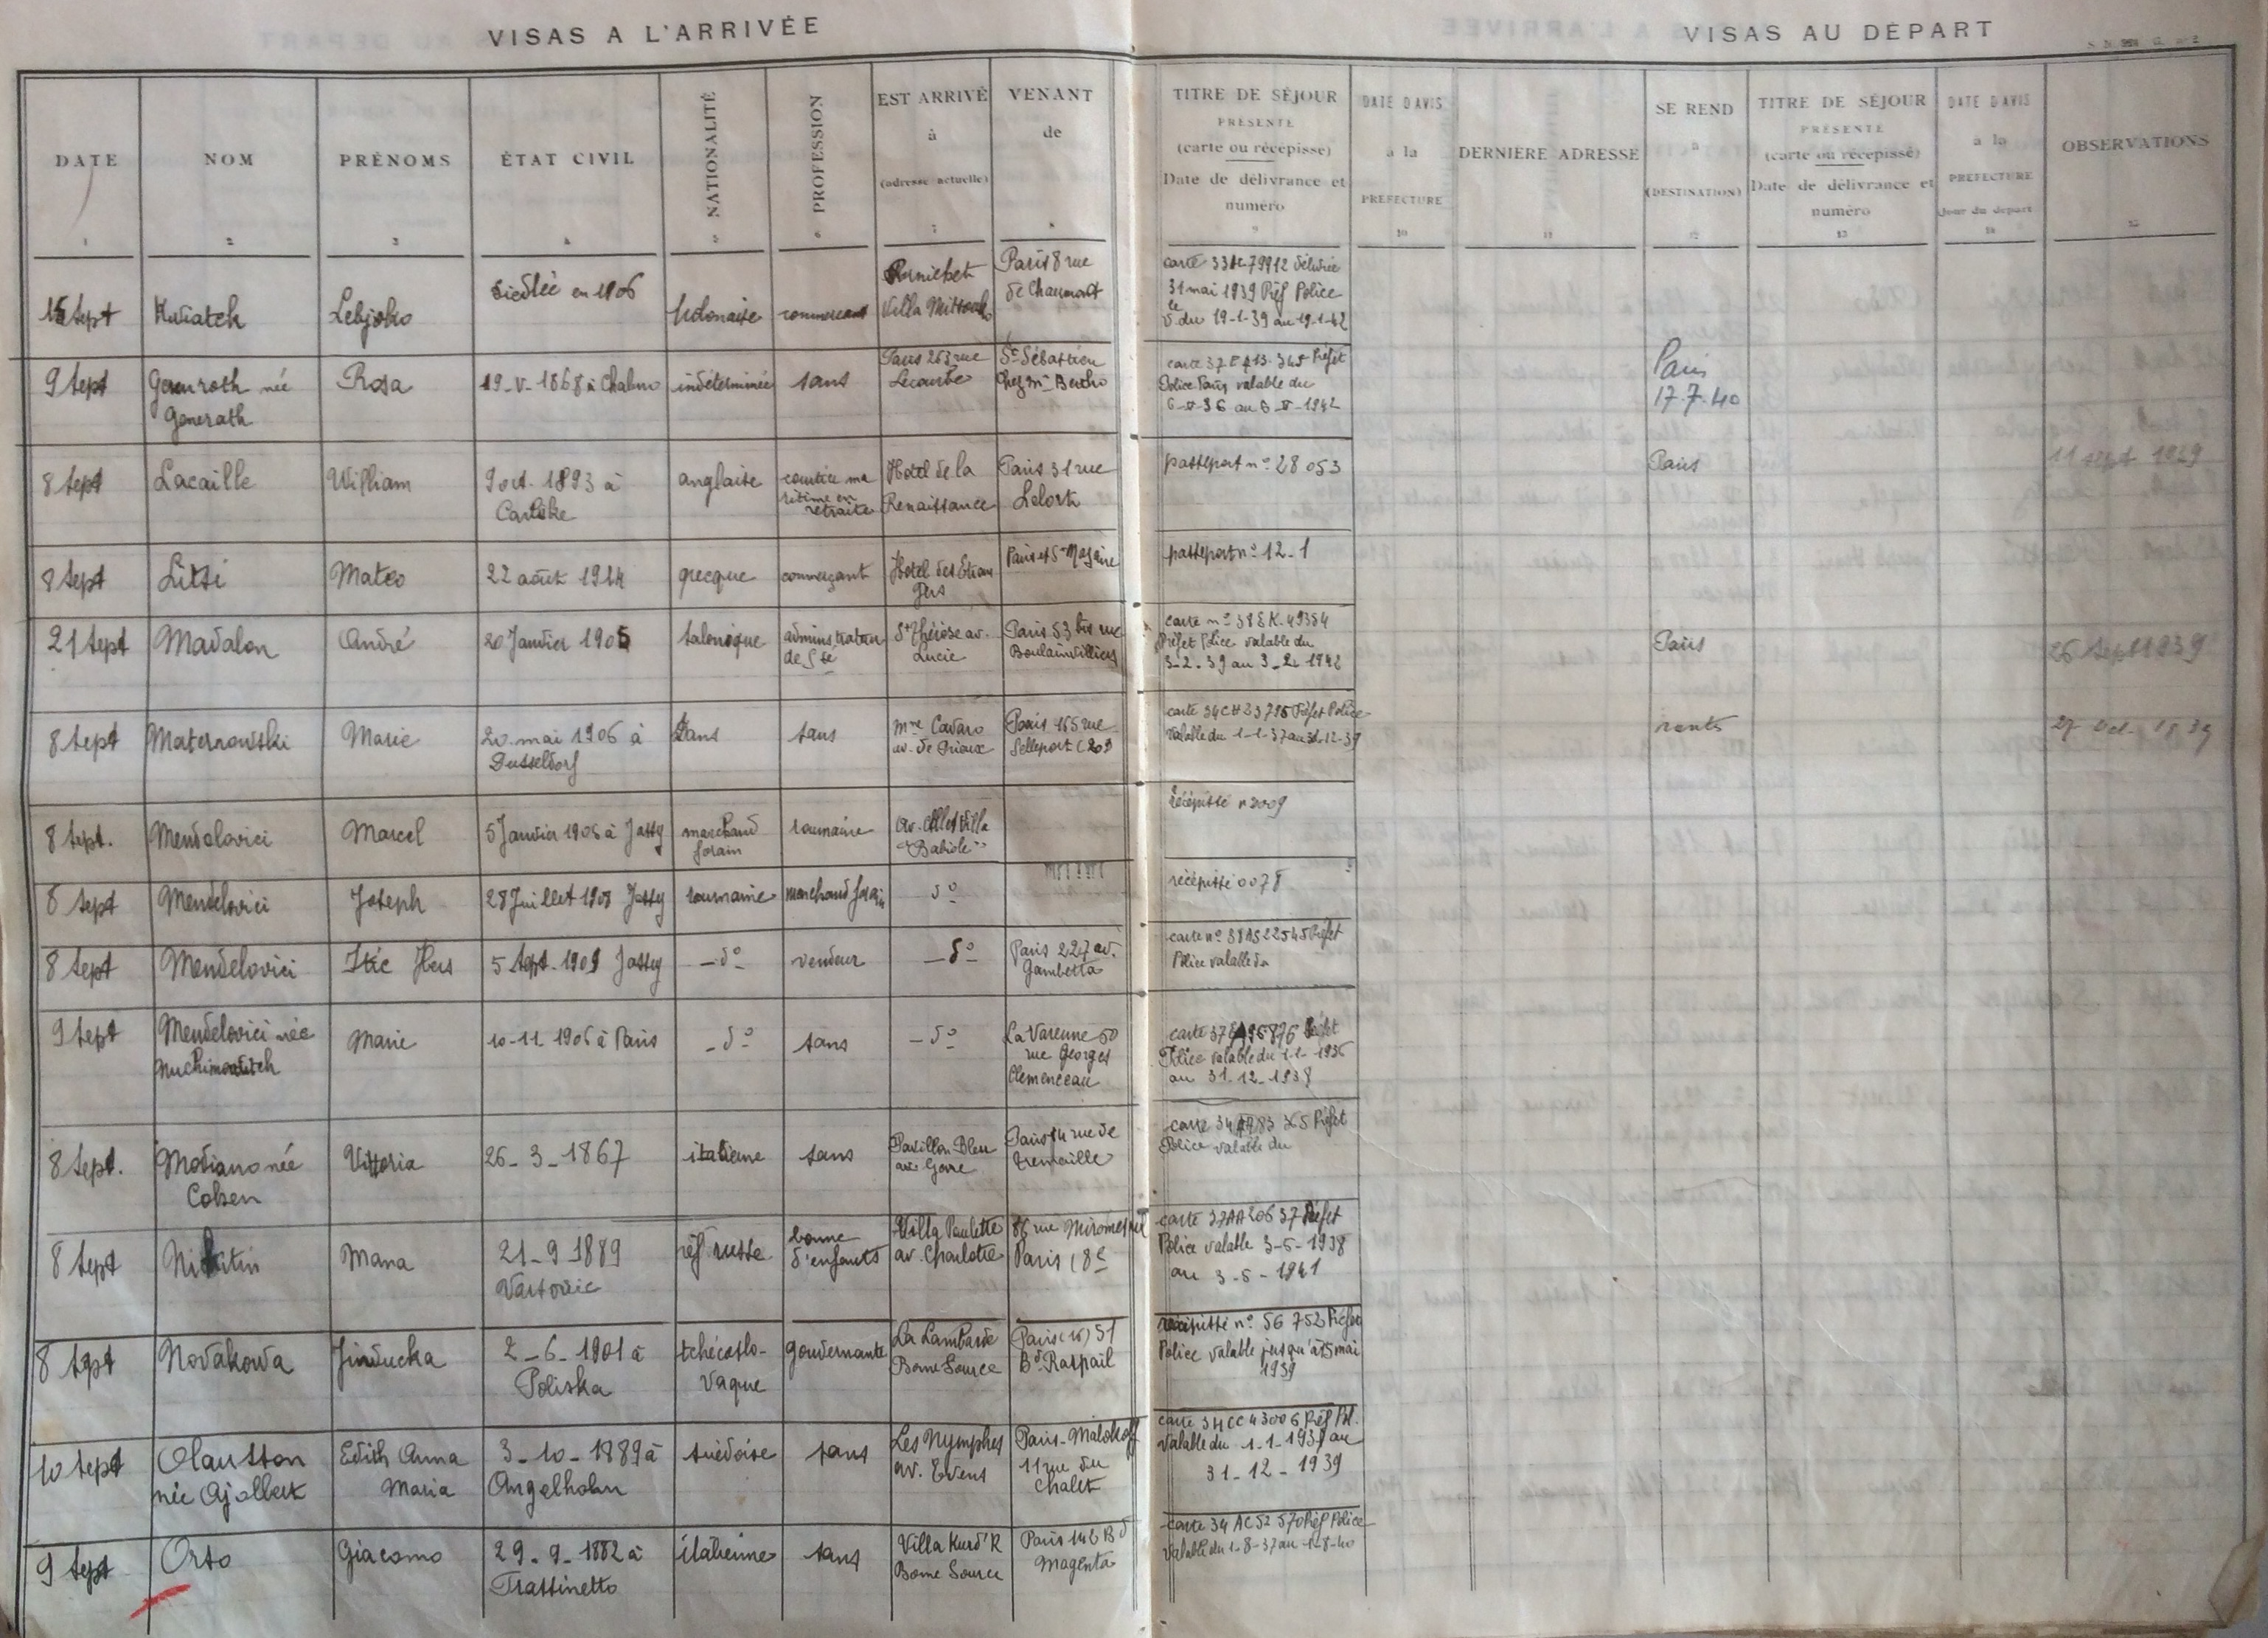 VISAS A L'ARRIVÉE
VISAS AU DÉPART
DATE
1
NOM
2
PRÉNOMS
3
ÉTAT CIVIL
4
NATIONALITÉ
5
PROFESSION
6
EST ARRIVÉ
à
(adresse actuelle)
7
VENANT
de
TITRE DE SÉJOUR
PRÉSENTÉ
(carte ou récépissé)
Date de délivrance et
numéro
9
DATE D'AVIS
à la
PRÉFECTURE
10
DERNIÈRE ADRESSE
11
SE REND
à
(DESTINATION)
12
TITRE DE SÉJOUR
PRÉSENTÉ
(carte ou récépissé)
Date de délivrance et
numéro
13
DATE D'AVIS
à la
PRÉFECTURE
Jour du départ
OBSERVATIONS
15 Sept
Kwiatek
en 1906
Paris 8 rue
de Chaumont
31 mai 1939 Préf Police
v. du 19-1-39 au 19-1-42
9 Sept
née
Generath
Rosa
19-V-1868 à
indéterminée
sans
Paris 263 rue
Lecourbe
St Sébastien
Chez Me Bertho
Police Paris valable du
Paris
17.7.40
8 Sept
Lacaille
William
9 oct. 1893 à
anglaise
ritime en
retraite
Hotel de la
Renaissance
Paris 31 rue
passeport n° 28 053
Paris
11 sept 1939
8 Sept
Litsi
Mateo
22 août 1914
grecque
commerçant
Hotel des Etran
gers
passeport n° 12-1
21 Sept
Madalon
André
20 Janvier 1905
de Sté
Ste Thérèse av.
Lucie
Paris 53 bis rue
Boulainvilliers
Préfet Police valable du
3-2-39 au 3-2-1942
Paris
26 Sept 1939
8 Sept
Maternowski
Marie
20 mai 1906 à
Dusseldorf
sans
sans
Mme Cavaro
av. de
Paris 165 rue
Pelleport (20e
carte 34CH23795 Préfet Police
valable du 1-1-37 au 31-12-39
27 Oct 1939
8 Sept.
Mendelovici
Marcel
5 Janvier 1906 à Jassy
marchand
forain
roumaine
Villa
"Babiole"
récépissé n 2009
8 Sept
Mendelovici
Joseph
28 Juillet 1908 Jassy
roumaine
marchand forain
d°
récépissé 0078
8 Sept
Mendelovici
Itic Hers
5 Sept. 1909 Jassy
-d°-
vendeur
-d°-
Paris 227 av.
Gambetta
carte n° 38AS22545 Préfet
Police valable du
9 Sept
Mendelovici née
Nuchimovitch
Marie
10-11 1906 à Paris
-d°-
sans
-d°-
La Varenne 50
rue Georges
Clemenceau
Police valable du 1-1-1936
au 31-12-1938
8 Sept.
Modiano née
Cohen
Vittoria
26-3-1867
italienne
sans
Pavillon Bleu
Paris 14 rue de
Police valable du
8 Sept
Nikitin
21-9 1889
réf russe
bonne
d'enfants
Villa Paulette
av. Charlotte
86 rue Miromesnil
Paris (8e
carte 37AA20637 Préfet
Police valable 3-5-1938
au 3-5-1941
8 Sept
Novakova
2-6-1901 à
Poliska
tchécoslo-
vaque
gouvernante
La Lambarde
Bonne Source
51
Bd Raspail
récépissé n° 56 752 Préfet
Police valable jusqu'à 15 mai
1939
10 Sept
Olausson
née
Edith Anna
Maria
3-10-1889 à
Angelholm
suédoise
sans
Les Nymphes
av. Evens
Paris-Malakoff
11 rue du
Chalet
carte 34CC43006 Préf Pol.
valable du 1-1-1937 au
31-12-1939
9 Sept
Orso
Giacomo
29-9-1882 à
italienne
sans
Villa
Bonne Source
Paris 146 Bd
Magenta
carte 34 AC52 570 Préf Police
valable du 1-8-37 au 1-8-40